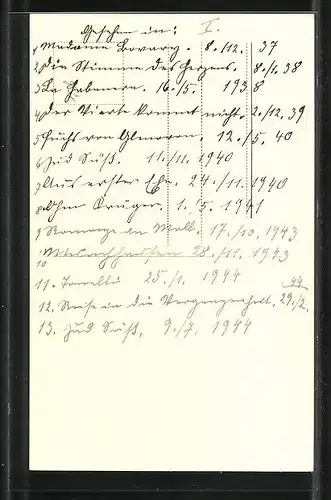 Gesehen in: I.
1 Madame Bovary. 8./12. 37
2 Die Stimme des Herzens. 8./1. 38
3 La Habanera. 16./5. 1938
4 Der Vierte kommt nicht. 2./12. 39
5 Fuchs von Glenarvon. 12./5. 40
6 Jud Süß. 11./11. 1940
7 Aus erster Ehe. 24./11. 1940
8 Ohm Krüger. 1./5. 1941
9 Romanze in Moll. 17./10. 1943
10 Münchhausen 28./11. 1943
11. Tonelli 25./1. 1944
12. Reise in die Vergangenheit. 29./2. 44
13. Jud Süß, 9./7. 1944